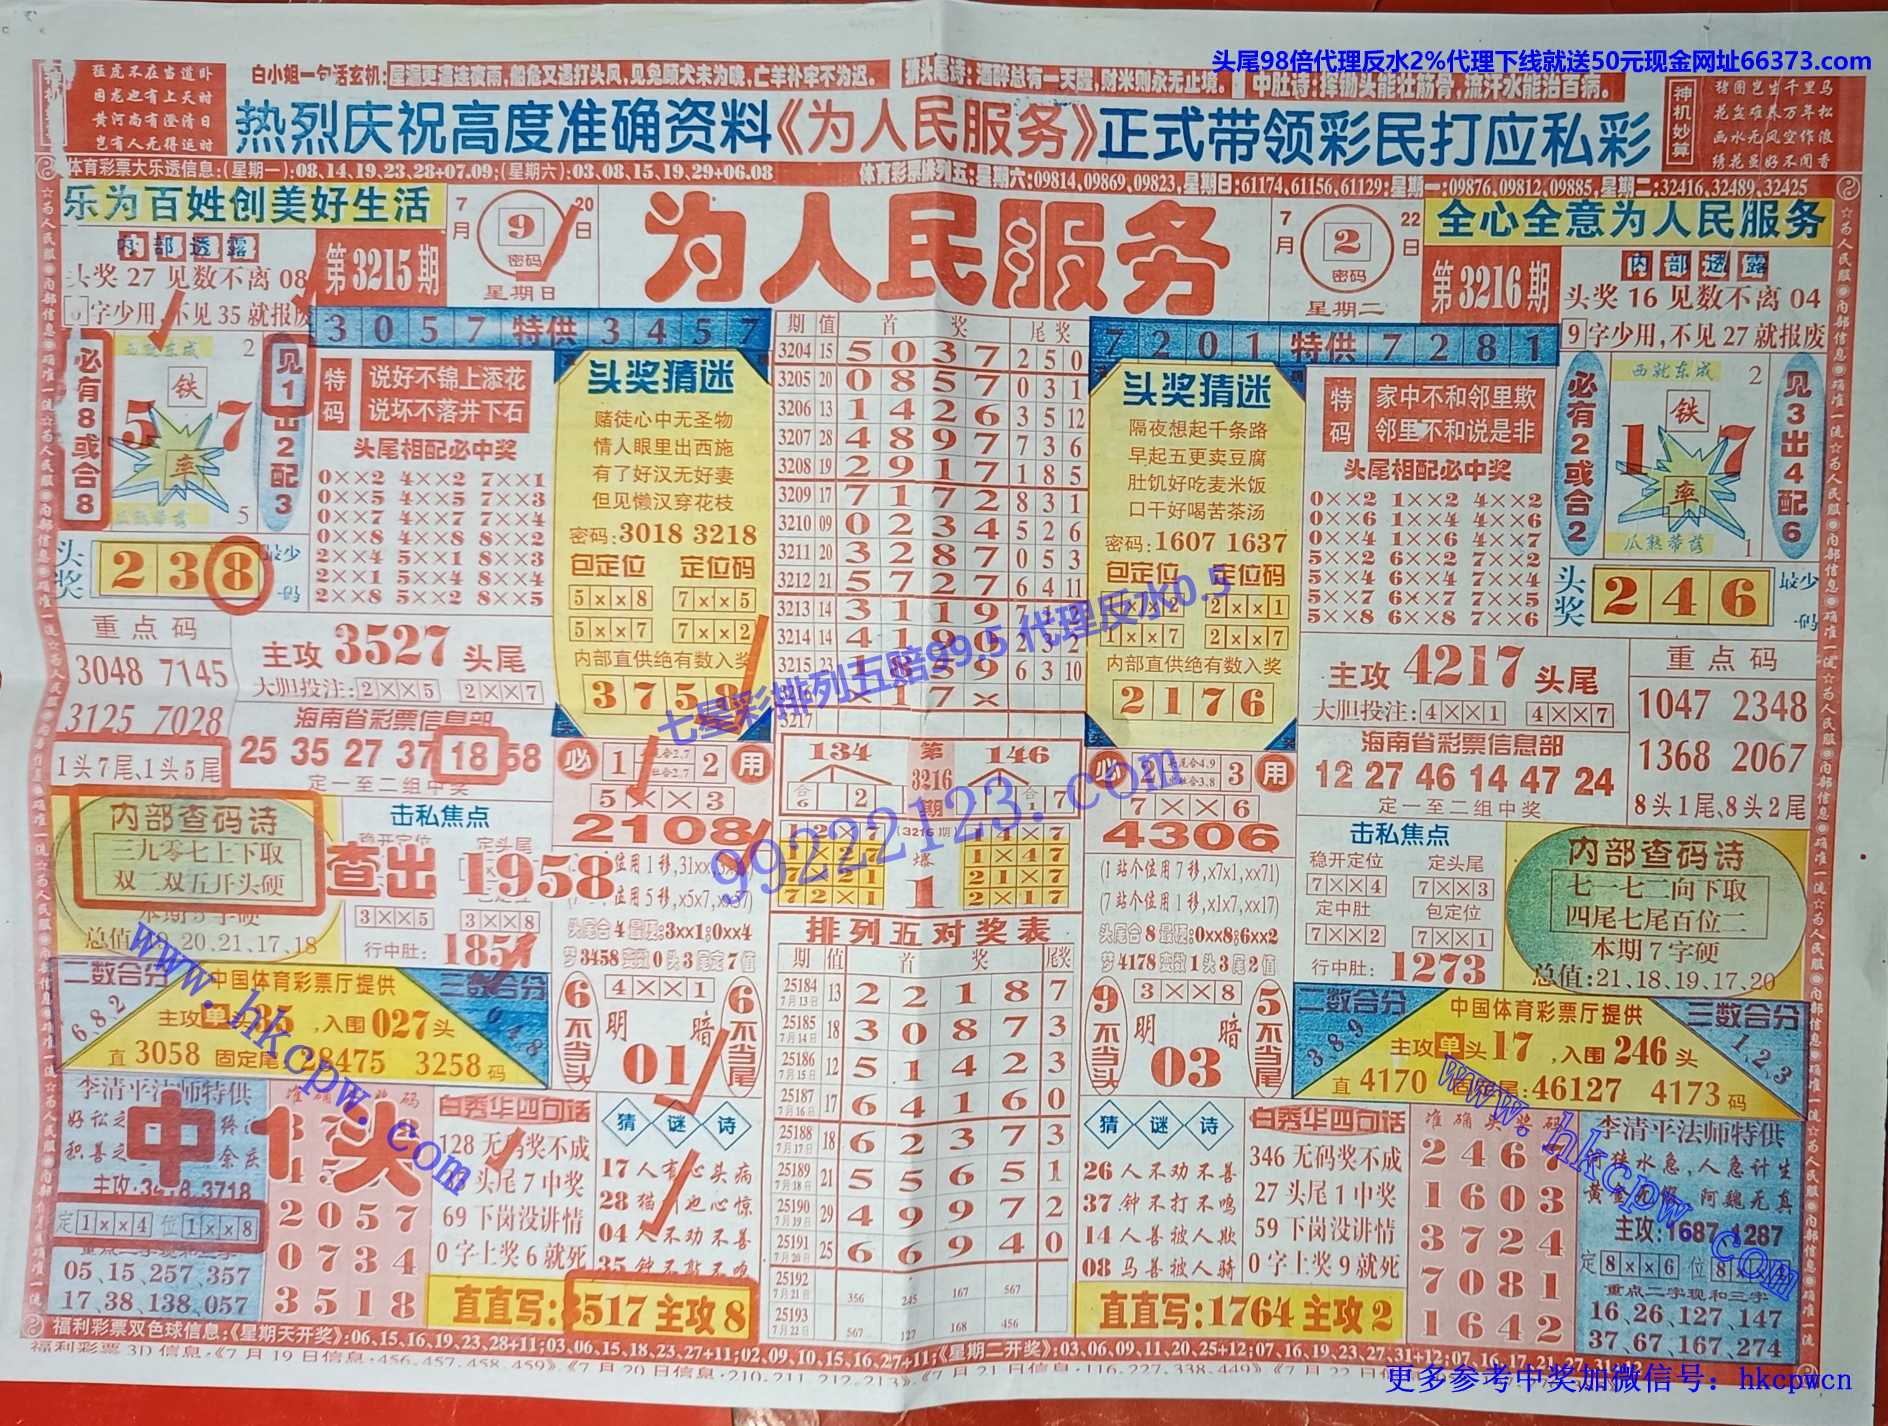 头尾98倍代理反水2%代理下线就送50元现金网址66373.com
猛虎不在当道卧
困龙也有上天时
黄河尚有澄清日
岂有人无得运时
白小姐一句话玄机:屋漏更遭连夜雨,船危又遇打头风,见兔顾犬未为晚,亡羊补牢不为迟。
猜头尾诗:酒醉总有一天醒,财米则永无止境。
中肚诗:挥锄头能壮筋骨,流汗水能治百病。
热烈庆祝高度准确资料《为人民服务》正式带领彩民打应私彩
神机妙算
猪圈岂生千里马
花盆难养万年松
画水无风空作浪
绣花虽好不闻香
体育彩票大乐透信息:(星期一):08,14,19,23,28+07.09;(星期六):03,08,15,19,29+06.08
体育彩票排列五:星期六:09814,09869,09823,星期日:61174,61156,61129;星期一:09876,09812,09885,星期二:32416,32489,32425
乐为百姓创美好生活
7月 9 20日
密码
星期日
为人民服务
7月 2 22日
密码
星期二
全心全意为人民服务
内部透露
头奖 27 见数不离 08
字少用,不见 35 就报废
第3215期
第3216期
内部透露
头奖 16 见数不离 04
9 字少用,不见 27 就报废
3057 特供 3457
7201 特供 7281
必有8或合8
西就东成 2
铁
5 7
率
瓜熟蒂落 5
见1出2配3
头奖 238 最少一码
特码
说好不锦上添花
说坏不落井下石
头尾相配必中奖
0××2 4××2 7××1
0××5 4××5 7××3
0××7 4××7 7××4
0××8 4××8 8××2
2××4 5××1 8××3
2××1 5××2 8××4
2××8 5××2 8××5
头奖猜迷
赌徒心中无圣物
情人眼里出西施
有了好汉无好妻
但见懒汉穿花枝
密码:3018 3218
包定位 定位码
5××8 7××5
5××7 7××2
内部直供绝有数入奖
3758
期 值 首奖 尾奖
3204 15 5037 250
3205 20 0857 031
3206 13 1426 3 5 12
3207 28 4897 736
3208 19 2917 185
3209 17 7172 831
3210 09 0234 526
3211 20 3287 053
3212 21 5727 6 4 11
3213 14 3119
3214 14
3215 23 6 3 10
×17×
3217
头奖猜迷
隔夜想起千条路
早起五更卖豆腐
肚饥好吃麦米饭
口干好喝苦茶汤
密码:1607 1637
包定位 定位码
1××2 2××1
1××7 2××7
内部直供绝有数入奖
2176
特码
家中不和邻里欺
邻里不和说是非
头尾相配必中奖
0××2 1××2 4××2
0××6 1××4 4××6
0××4 1××6 4××7
5××2 6××2 7××2
5××4 6××4 7××4
5××7 6××7 7××5
5××8 6××8 7××6
必有2或合2
西就东成 2
铁
1 7
率
瓜熟蒂落 1
见3出4配6
头奖 246 最少一码
重点码
3048 7145
3125 7028
1头7尾、1头5尾
主攻 3527 头尾
大胆投注:2××5 2××7
海南省彩票信息部
25 35 27 37 18 58
定一至二组中奖
七星彩排列五赔99.5 代理反水0.5
99222123.com
主攻 4217 头尾
大胆投注:4××1 4××7
海南省彩票信息部
12 27 46 14 47 24
定一至二组中奖
重点码
1047 2348
1368 2067
8头1尾、8头2尾
必 1 2 用
5××3
2108
134 第3216期 146
必 2 3 用
7××6
4306
内部查码诗
三九零七上下取
双二双五开头硬
总值:19、20、21、17、18
击私焦点
稳开定位 定头尾
查出 1958
3××5 3××8
行中肚:
头尾合4最硬:3xx1;0xx4
梦3458变数0头3尾定7值
(3216期)
1×27 1×47
7×21 21×7
72×1 2×17
1
(1站个位用7移,x7x1,xx71)
(7站个位用1移,x1x7,xx17)
头尾合8最硬:0xx8;6xx2
梦4178变数1头3尾2值
击私焦点
稳开定位 定头尾
7××4 7××3
定中肚 包定位
7××2 7××1
行中肚: 1273
内部查码诗
七一七二向下取
四尾七尾百位二
本期7字硬
总值:21、18、19、17、20
排列五对奖表
期 值 首奖 尾奖
25184 7月13日 13 2218 7
25185 7月14日 18 3087 3
25186 7月15日 12 5142 3
25187 7月16日 17 6416 0
25188 7月17日 18 6237 3
25189 7月18日 21 5565 1
25190 7月19日 29 4997 2
25191 7月20日 25 6694 0
25192 7月21日 356 245 167 567
25193 7月22日 567 127 168 456
二数合分 682
中国体育彩票厅提供
主攻单头35,入围027头
直 3058 固定尾:38475 3258码
三数合分 0、4、8
6不当头
4××1
明 暗
01
6不当尾
9不当头
3××8
明 暗
03
5不当尾
二数合分 389
中国体育彩票厅提供
主攻单头17,入围246头
直 4170 46127 4173码
三数合分 1、2、3
www.hkcpw.com
www.hkcpw.com
李清平法师特供
中1头
主攻:3418,3718
定1××4 位1××8
05、15、257、357
17、38、138、057
准确头奖码
2057
0734
3518
白秀华四句话
128 无码奖不成
头尾7中奖
69 下岗没讲情
0字上奖6就死
猜谜诗
17 人有心头病
28 猫 也心惊
04 人不劝不善
35 钟不敲不鸣
直直写:3517 主攻 8
猜谜诗
26 人不劝不善
37 钟不打不鸣
14 人善被人欺
08 马善被人骑
白秀华四句话
346 无码奖不成
27 头尾1中奖
59 下岗没讲情
0字上奖9就死
直直写:1764 主攻 2
准确头奖码
2467
1603
3724
7081
1642
李清平法师特供
河狭水急,人急计生
黄金无假 阿魏无真
主攻:1687,1287
定8××6
重点二字现和三字
16、26、127、147
37、67、167、274
福利彩票双色球信息:《星期天开奖》:06,15,16,19,23,28+11;03,06,15,18,23,27+11;02,09,10,15,16,27+11;《星期二开奖》:03,06,09,11,20,25+12;07,16,19,23,27,31+12;
福利彩票3D信息:《7月19日信息:456,457,458,459》《7月20日信息:210,211,212,213》《7月21日信息:116,227,338,449》
更多参考中奖加微信号: hkcpwcn